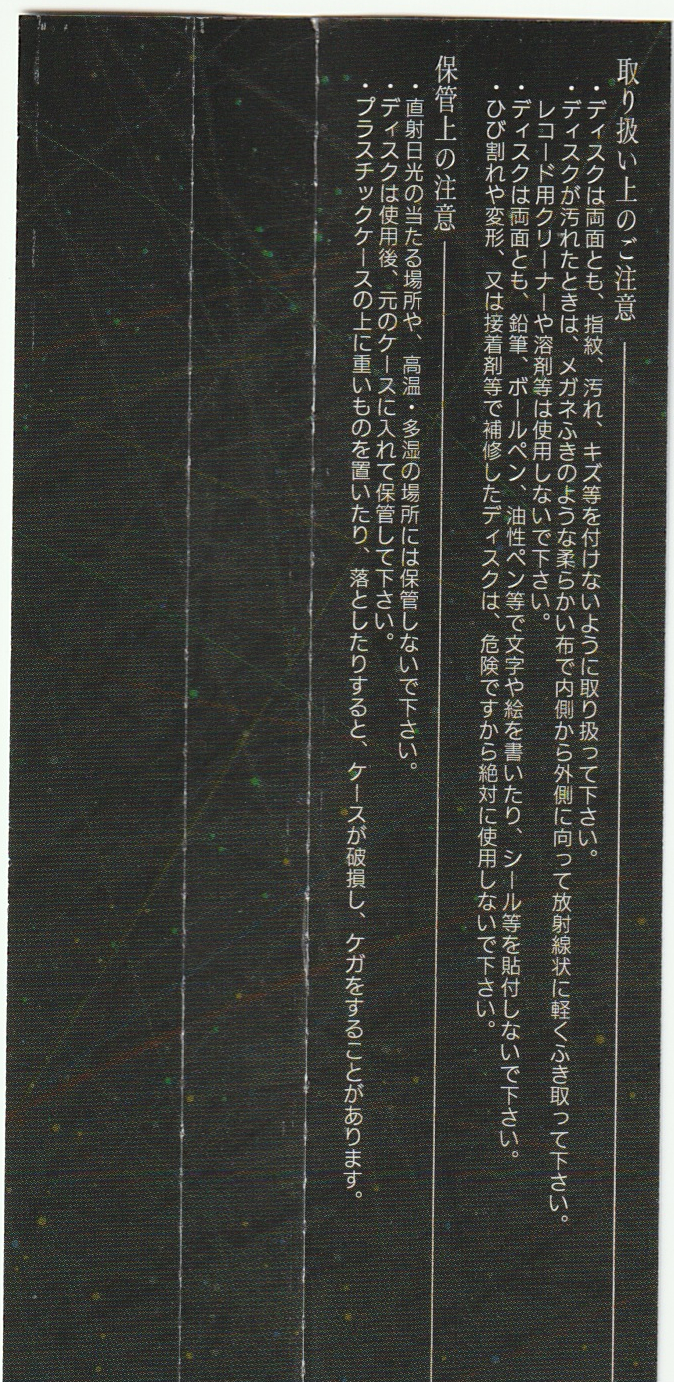 取り扱い上のご注意
・ディスクは両面とも、指紋、汚れ、キズ等を付けないように取り扱って下さい。
・ディスクが汚れたときは、メガネふきのような柔らかい布で内側から外側に向って放射線状に軽くふき取って下さい。
レコード用クリーナーや溶剤等は使用しないで下さい。
・ディスクは両面とも、鉛筆、ボールペン、油性ペン等で文字や絵を書いたり、シール等を貼付しないで下さい。
・ひび割れや変形、又は接着剤等で補修したディスクは、危険ですから絶対に使用しないで下さい。
保管上の注意
・直射日光の当たる場所や、高温・多湿の場所には保管しないで下さい。
・ディスクは使用後、元のケースに入れて保管して下さい。
・プラスチックケースの上に重いものを置いたり、落としたりすると、ケースが破損し、ケガをすることがあります。